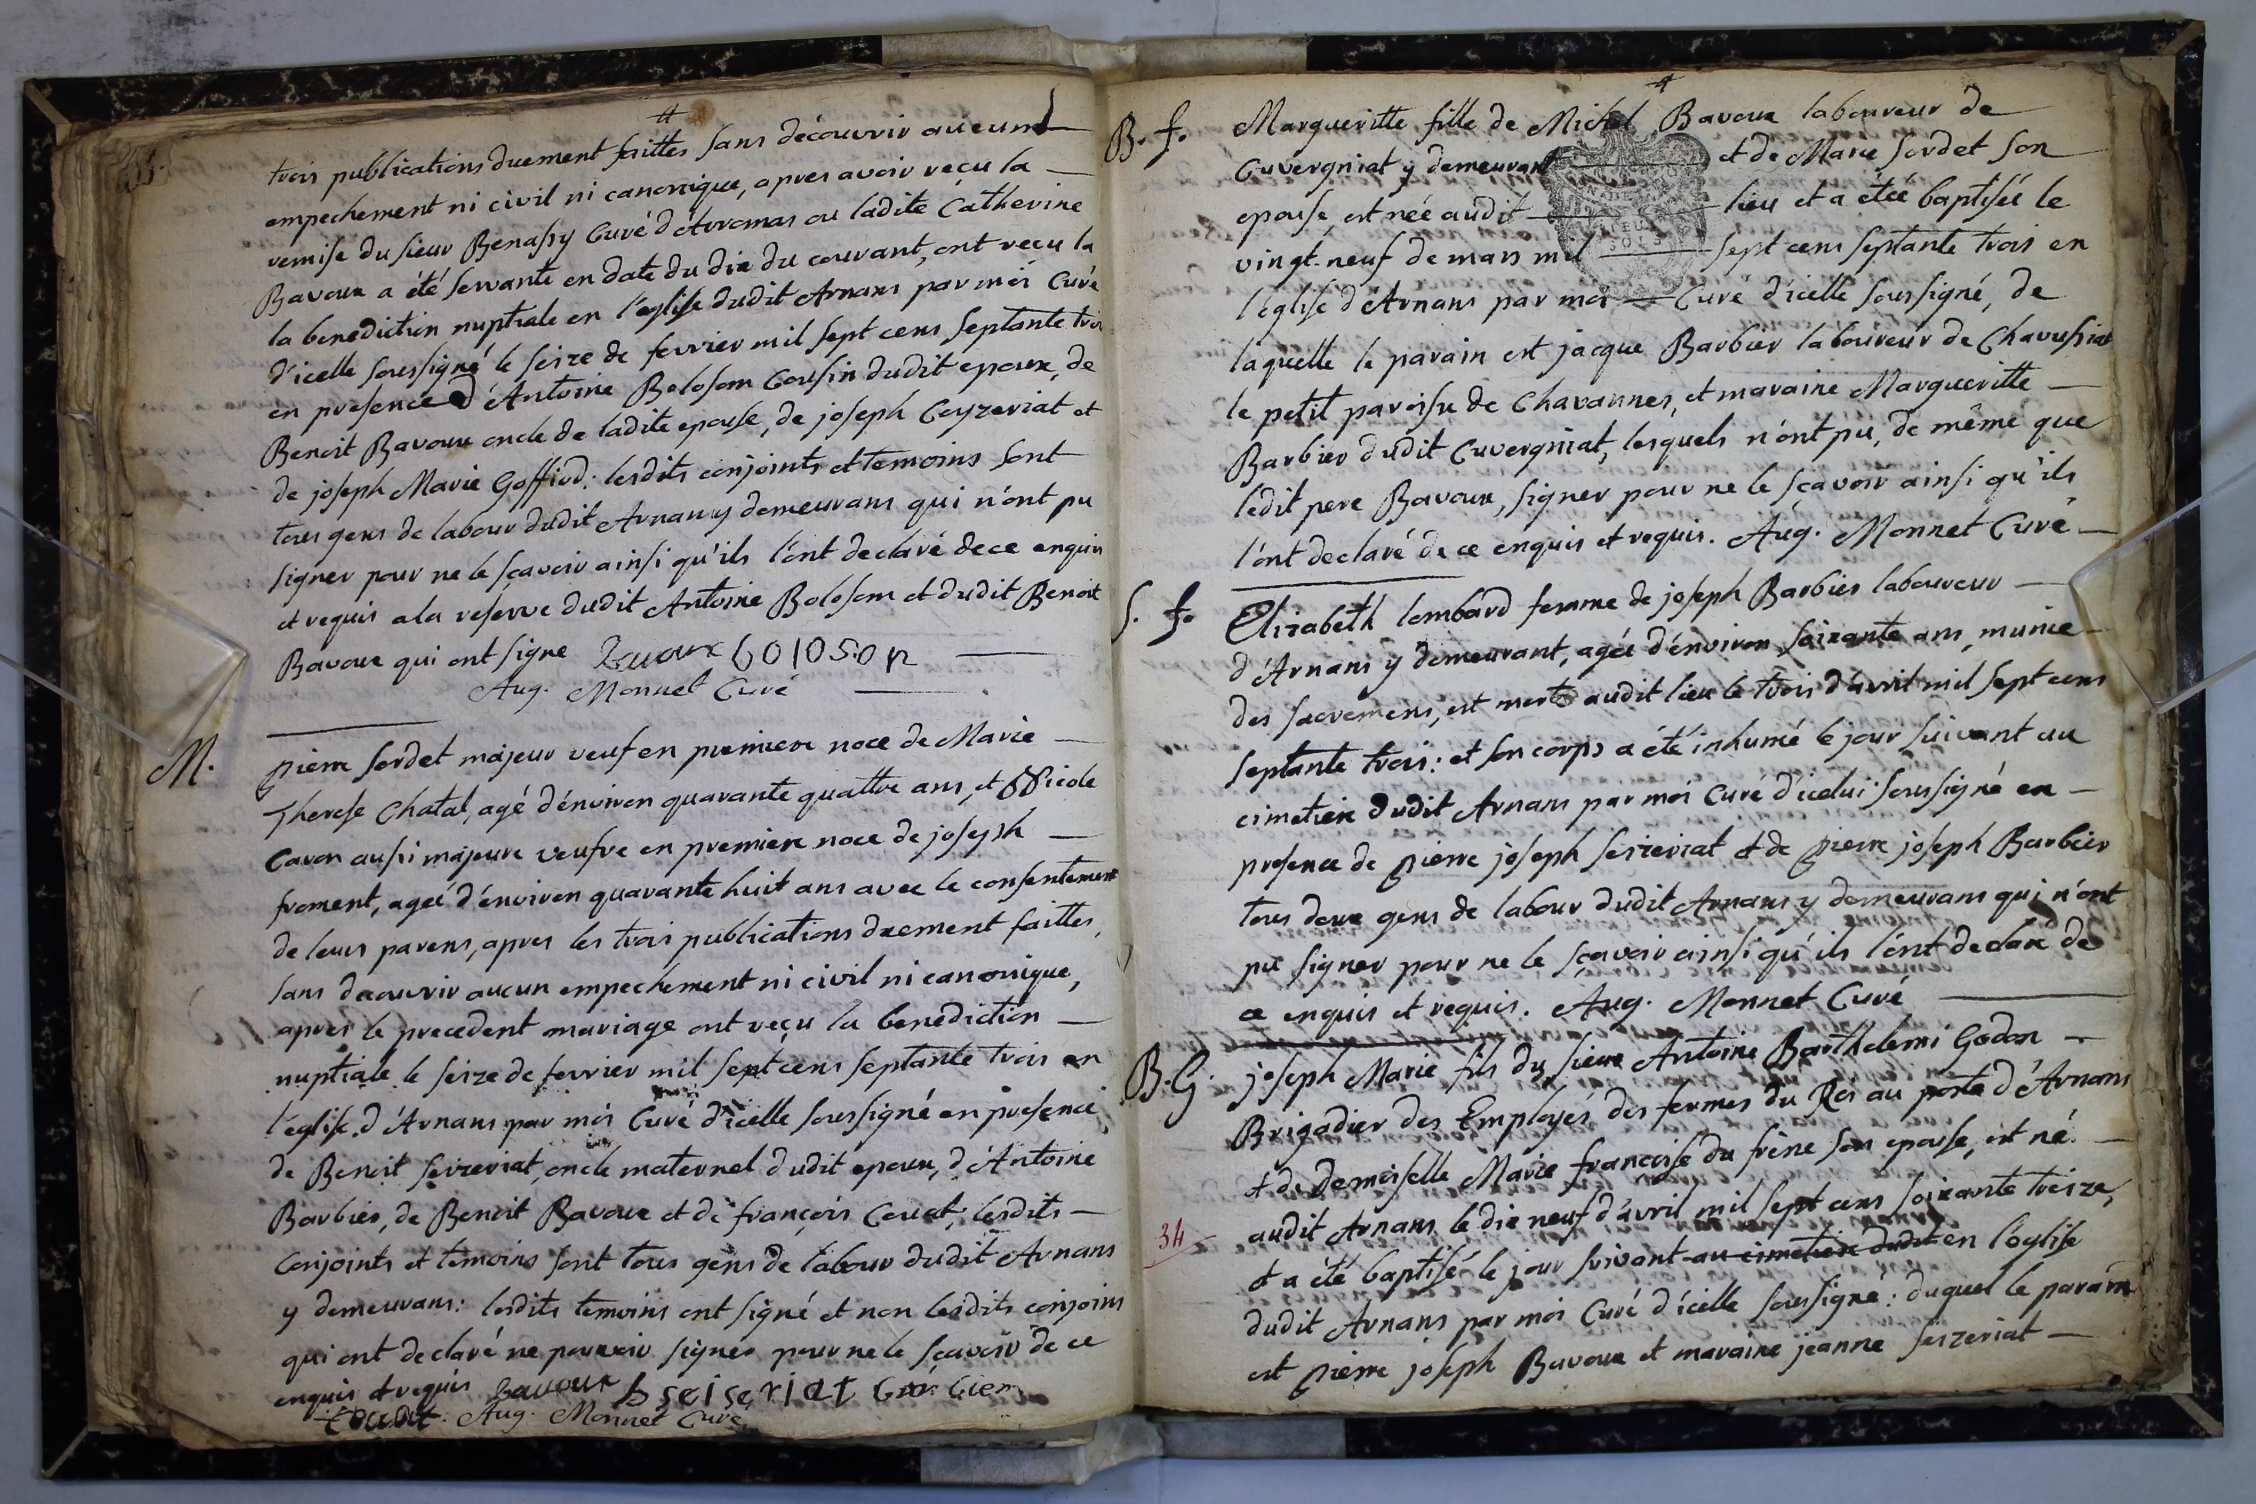 trois publications duement faittes sans découvrir aucune
empechement ni civil ni canonique, apres avoir reçu la
remise du sieur Benassy Curé d'Arromas ou ladite Catherine
Bavoux a été servante en date du dix du courant, ont reçu la
la benediction nuptiale en l'eglise dudit Arnans par moi Curé
d'icelle soussigné le seize de fevrier mil sept cens septante trois
en presence d'Antoine Boloson Cousin dudit epoux, de
Benoit Bavoux oncle de ladite epouse, de joseph Ceyzeriat et
de joseph Marie Goffiod: lesdits conjoints et temoins sont
tous gens de labour dudit Arnans y demeurans qui n'ont pu
signer pour ne le sçavoir ainsi qu'ils l'ont declaré de ce enquis
et requis a la reserve dudit Antoine Boloson et dudit Benoit
Bavoux qui ont signe Bavoux boloson
Aug. Monnet Curé
M.
pierre sordet majeur veuf en premiere noce de Marie
Therese Chatal, agé d'énviron quarante quattre ans, et Nicole
Cavon aussi majeure veufve en premiere noce de joseph
froment, ageé d'énviron quarante huit ans avec le consentement
de leurs parens, apres les trois publications duement faittes,
sans decouvrir aucun empechement ni civil ni canonique,
apres le precedent mariage ont reçu la benediction
nuptiale le seize de fevrier mil sept cens septante trois en
l'eglise d'Arnans par moi Curé d'icelle soussigné en presence
de Benoit seizeriat, oncle maternel dudit epoux, d'Antoine
Barbier, de Benoit Bavoux et de françois Couat; lesdits
Conjoints et temoins sont tous gens de labour dudit Arnans
y demeurans: lesdits temoins ont signé et non lesdits conjoins
qui ont declaré ne pouvoir signer pour ne le sçavoir de ce
enquis et requis bavoux b seiseriat barbier
Couat. Aug. Monnet Curé
B. f.
Margueritte fille de Michel Bavoux laboureur de
Cuvergniat y demeurant et de Marie sordet son
epouse, est neé audit lieu et a étéé baptiseé le
vingt-neuf de mars mil sept cens septante trois en
l'église d'Arnans par moi Curé d'icelle soussigné, de
laquelle le parain est jacque Barbier laboureur de Chavussiat
le petit paroisse de Chavannes, et maraine Margueritte
Barbier dudit Cuvergniat, lesquels n'ont pu, de même que
ledit pere Bavoux, signer pour ne le sçavoir ainsi qu'ils
l'ont declaré de ce enquis et requis. Aug. Monnet Curé
S. f.
Elizabeth lombard femme de joseph Barbier laboureur
d'Arnans y demeurant, ageé d'énviron soixante ans, munie
des sacremens, est morte audit lieu le trois d'avril mil sept cens
septante trois: et son corps a été inhumé le jour suivant au
cimetiere dudit Arnans par moi Curé d'icelui soussigné en
presence de pierre joseph seizeriat et de pierre joseph Barbier
tous deux gens de labour dudit Arnans y demeurans qui n'ont
pu signer pour ne le sçavoir ainsi qu'ils l'ont declaré de
ce enquis et requis. Aug. Monnet Curé
B. G.
joseph Marie fils du sieur Antoine Barthelemi Godon
Brigadier des Employés des fermes du Roi au poste d'Arnans
et de Demoiselle Marie françoise du frêne son epouse, est né
audit Arnans le dix neuf d'avril mil sept cens soixante treize,
34
et a été baptisé le jour suivant au cimetiere dudit en l'eglise
dudit Arnans par moi Curé d'icelle soussigné: duquel le parain
est pierre joseph Bavoux et maraine jeanne seizeriat